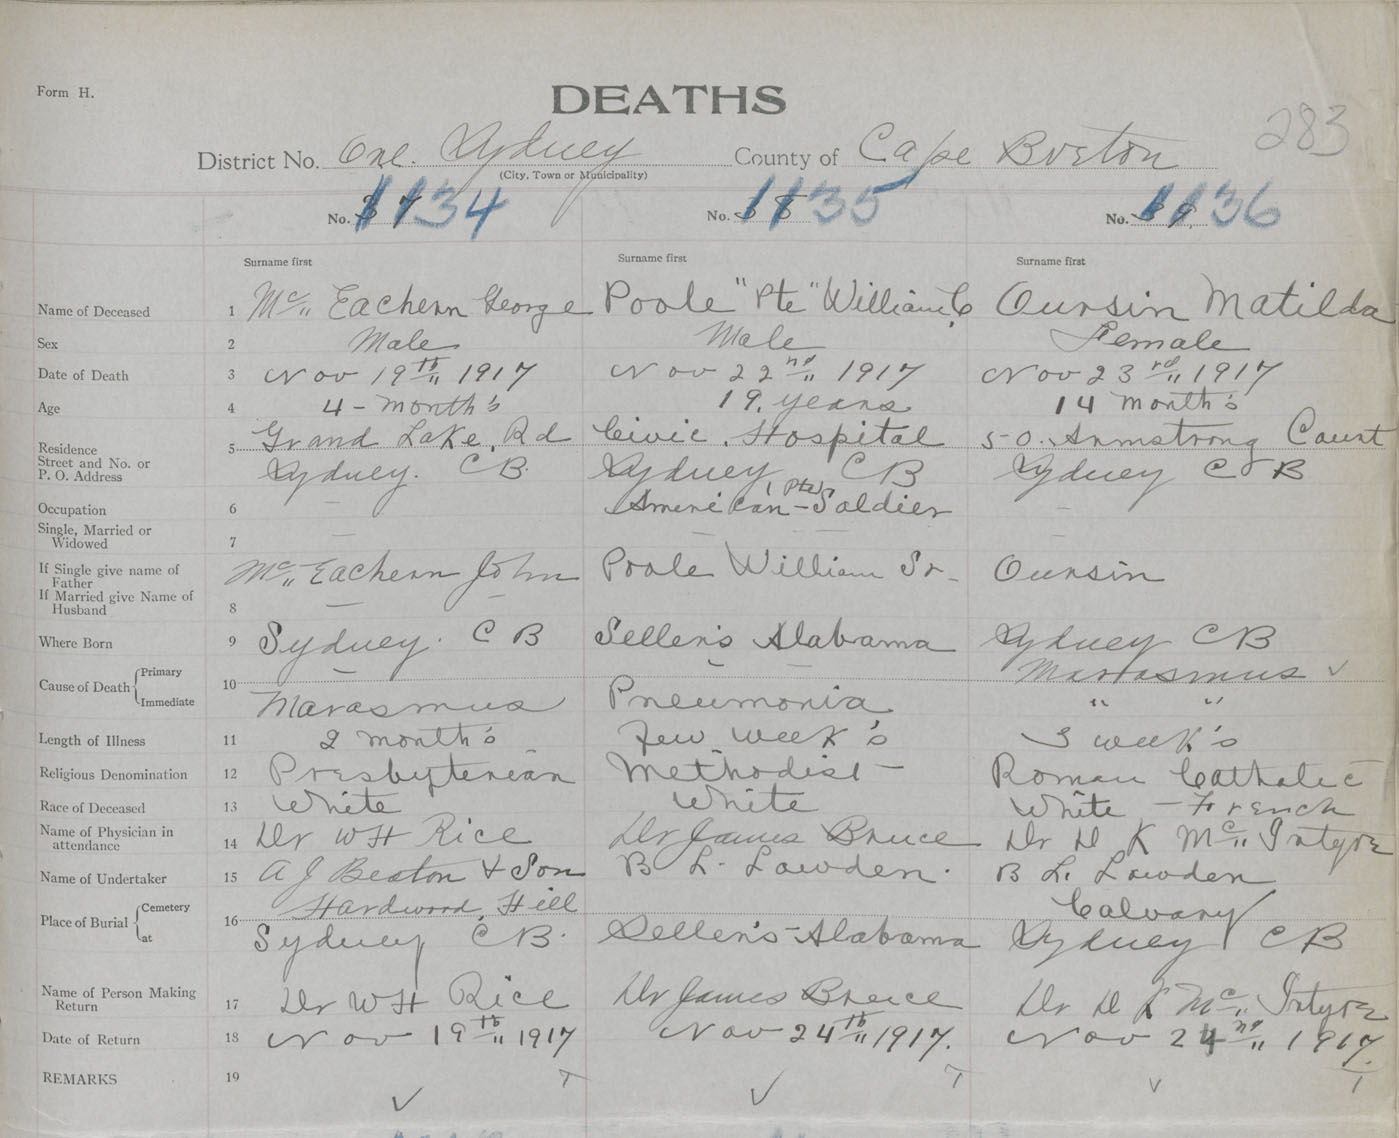 Form H.
DEATHS
283
District No. One. Sydney County of Cape Breton
(City, Town or Municipality)
No. 37 1134 No. 38 1135 No. 39 1136
Surname first Surname first Surname first
Name of Deceased 1 Mc" Eachern George Poole "Pte" William C Oursin Matilda
Sex 2 Male Male Female
Date of Death 3 Nov 19th" 1917 Nov 22nd" 1917 Nov 23rd" 1917
Age 4 4-month's 19. years 14 month's
Residence 5 Grand Lake. Rd Civic. Hospital 50. Armstrong Court
Street and No. or
P. O. Address Sydney. C B. Sydney C B Sydney C B
Occupation 6 — American (Pte) - Soldier —
Single, Married or
Widowed 7 — — —
If Single give name of
Father Mc" Eachern John Poole William Sr- Oursin
If Married give Name of
Husband 8 — —
Where Born 9 Sydney. C B Seller's Alabama Sydney C B
Cause of Death Primary 10 — — — Marasmus ✓
Immediate Marasmus Pneumonia " "
Length of Illness 11 2 month's Few week's 3 week's
Religious Denomination 12 Presbyterian Methodist- Roman Catholic
Race of Deceased 13 White White White - French
Name of Physician in
attendance 14 Dr W H Rice Dr James Bruce Dr D K Mc" Intyre
Name of Undertaker 15 A J Beaton & Son B L. Lowden. B L. Lowden
Place of Burial Cemetery 16 Hardwood. Hill Calvary
at Sydney C B. Seller's-Alabama Sydney C B
Name of Person Making
Return 17 Dr W H Rice Dr James Bruce Dr D K Mc" Intyre
Date of Return 18 Nov 19th" 1917 Nov 24th" 1917. Nov 24nd" 1917.
REMARKS 19 T T T
✓ ✓ ✓